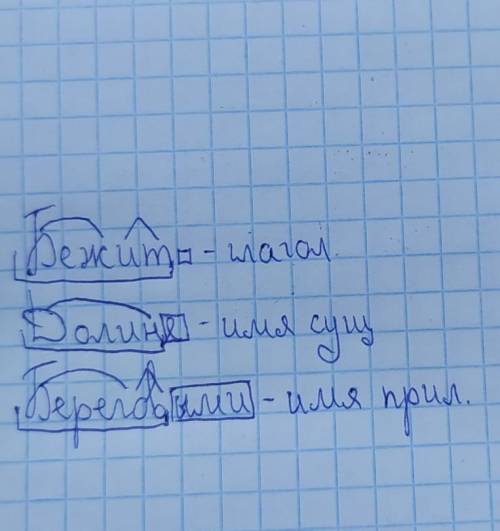 Бежит - глагол.
Долиня - имя сущ
Береговыми - имя прил.